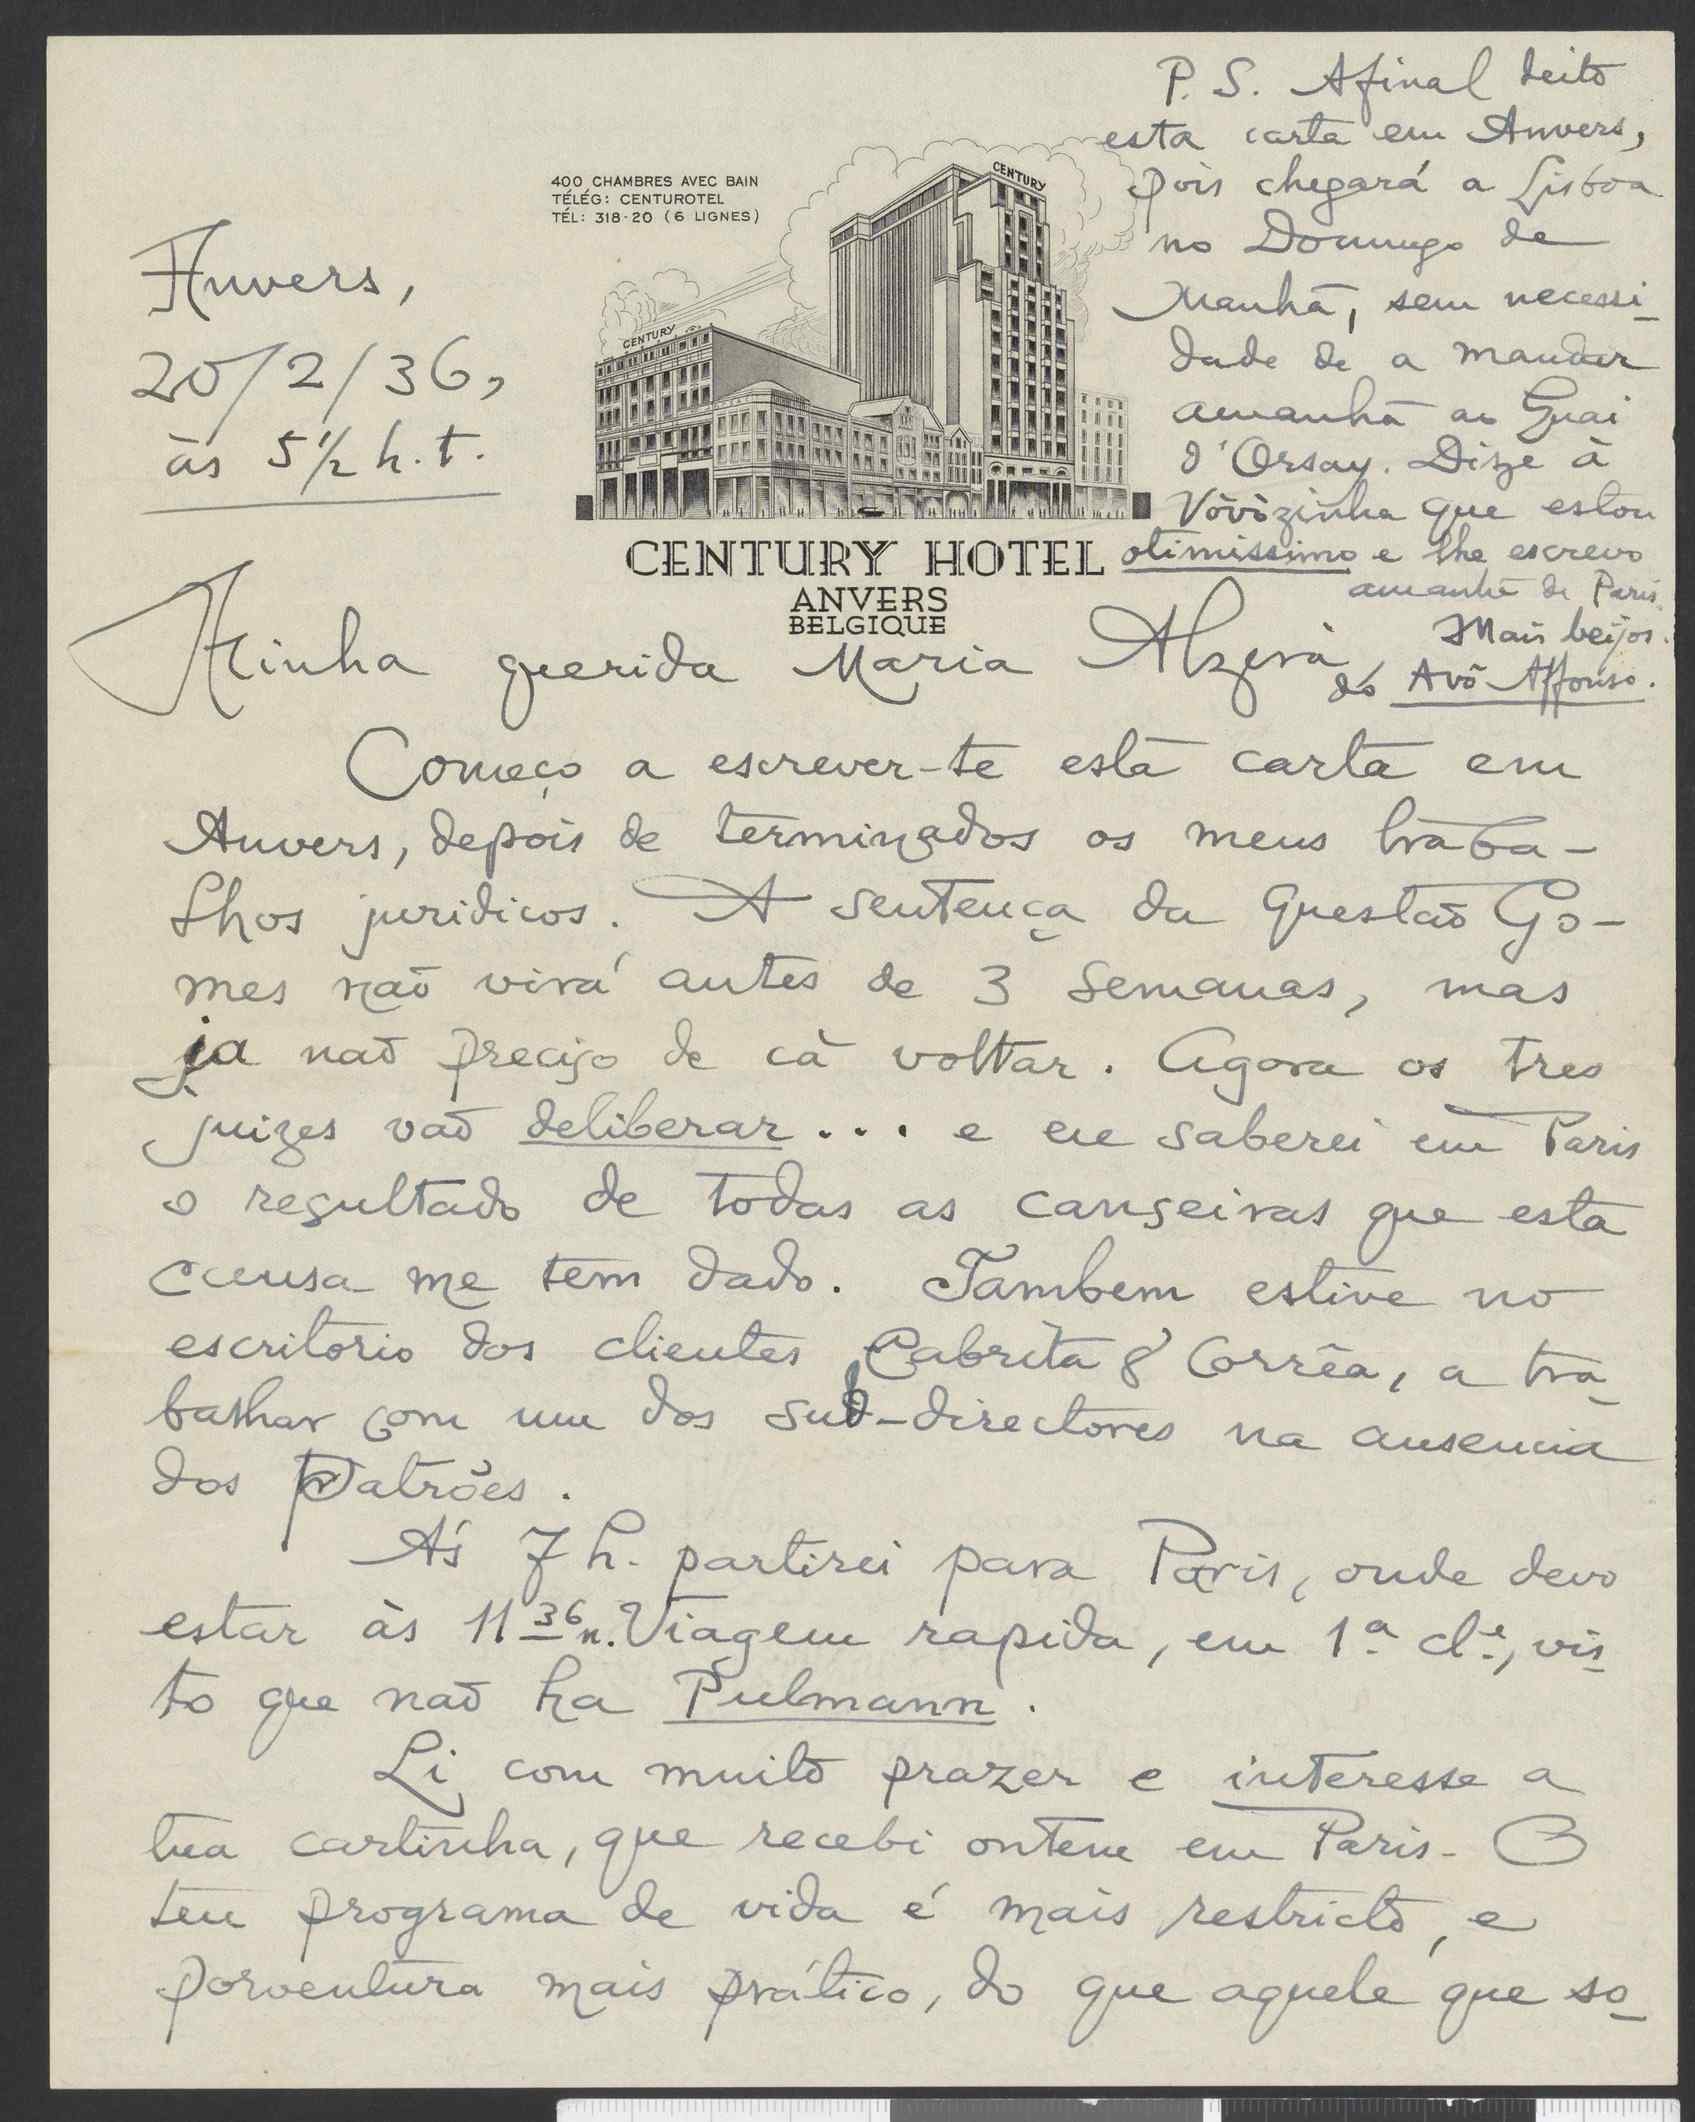 P. S. Afinal deito
esta carta em Anvers,
pois chegará a Lisboa
no Domingo de
Manhã, sem necessi-
dade de a mandar
amanhã ao Quai
d'Orsay. Dize à
Vòvòzinha que estou
otimissimo e lhe escrevo
amanhã de Paris.
Mais beijos.
do Avô Affonso.
400 CHAMBRES AVEC BAIN
TÉLÉG: CENTUROTEL
TÉL: 318-20 (6 LIGNES)
CENTURY
CENTURY
CENTURY HOTEL
ANVERS
BELGIQUE
Anvers,
20/2/36,
às 5 1/2 h. t.
Minha querida Maria Alzira,
Começo a escrever-te esta carta em
Anvers, depois de terminados os meus traba-
lhos juridicos. A sentença da questão Go-
mes não virá antes de 3 semanas, mas
ja não preciso de cá voltar. Agora os tres
juizes vão deliberar... e eu saberei em Paris
o resultado de todas as canseiras que esta
causa me tem dado. Tambem estive no
escritorio dos clientes Cabrita & Corrêa, a tra-
balhar com um dos sub-directores na ausencia
dos Patrões.
Ás 7 h. partirei para Paris, onde devo
estar às 11 36 n. Viagem rapida, em 1ª cl.e, vis-
to que não ha Pulmann.
Li com muito prazer e interesse a
tua cartinha, que recebi ontem em Paris. O
teu programa de vida é mais restricto, e
porventura mais prático, do que aquele que so-